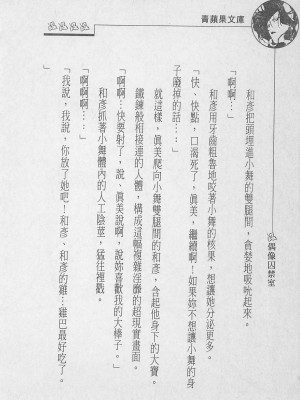 青蘋果文庫
偶像囚禁室
和彥把頭埋進小舞的雙腿間，貪婪地吸吮起來。
「啊啊…」
和彥用牙齒粗魯地咬著小舞的核果，想讓她分泌更多。
「快、快點，口渴死了，真美，繼續啊！如果妳不想讓小舞的身
子廢掉的話…」
就這樣，真美爬向小舞雙腿間的和彥，含起他身下的大寶。
鐵鍊般相接連的人體，構成這幅複雜淫靡的超現實畫面。
「啊啊…快要射了，說、真美說啊，說妳喜歡我的大棒子。」
和彥抓著小舞體內的人工陰莖，猛往裡戳。
「啊啊啊…：」
「我說，我說，你放了她吧！和彥、和彥的雞…雞巴最好吃了。
」